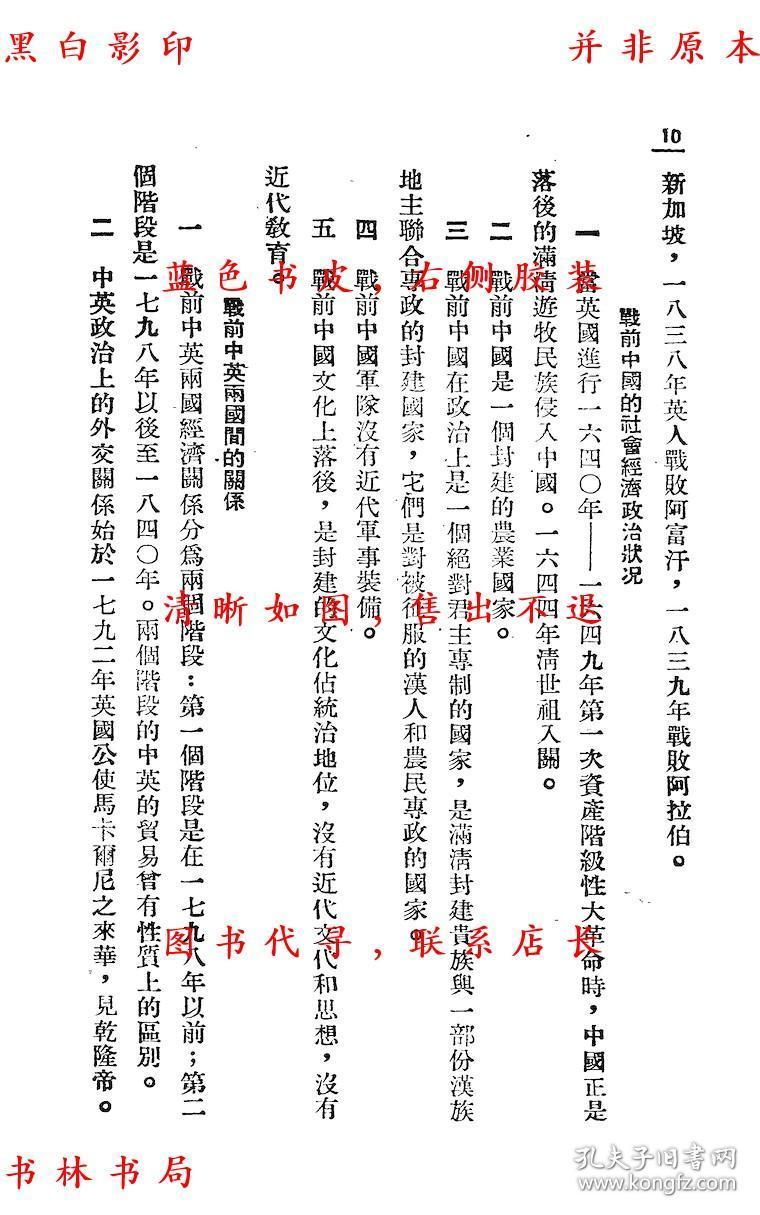 黑白影印
并非原本
10
新加坡，一八三八年英人戰敗阿富汗，一八三九年戰敗阿拉伯。
戰前中國的社會經濟政治狀况
一 當英國進行一六四〇年——一六四九年第一次資產階級性大革命時，中國正是
落後的滿清遊牧民族侵入中國。一六四四年清世祖入關。
二 戰前中國是一個封建的農業國家。
三 戰前中國在政治上是一個絕對君主專制的國家，是滿清封建貴族與一部份漢族
地主聯合專政的封建國家，它們是對被征服的漢人和農民專政的國家。
四 戰前中國軍隊沒有近代軍事裝備。
五 戰前中國文化上落後，是封建的文化佔統治地位，沒有近代文代和思想，沒有
近代敎育。
戰前中英兩國間的關係
一 戰前中英兩國經濟關係分爲兩個階段：第一個階段是在一七九八年以前；第二
個階段是一七九八年以後至一八四〇年。兩個階段的中英的貿易曾有性質上的區別。
二 中英政治上的外交關係始於一七九二年英國公使馬卡爾尼之來華，見乾隆帝。
蓝色书皮，右侧胶装
清晰如图，售出不退
图书代寻，联系店长
书林书局
孔夫子旧书网
www.kongfz.com